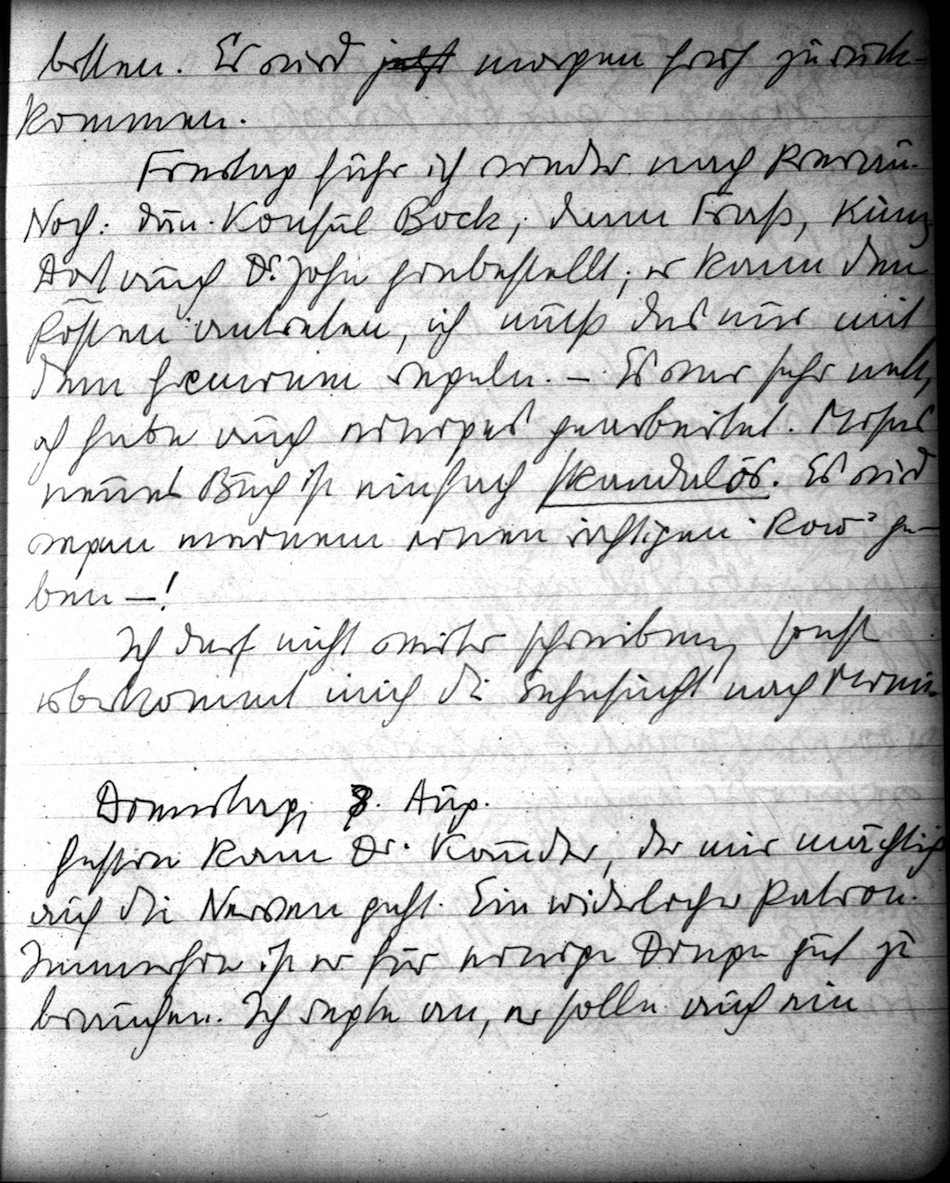 bellen. Es wird jetzt morgen früh zurück-
kommen.
Freitag fuhr ich wieder nach
Noch. dän. Konsul Bock, dann Fraß,
Dort auch Dr. John hinbestellt, er kann den
Posten antreten, ich muß das nur mit
dem regeln. – Es war sehr nett,
ich habe auch einiges gearbeitet. Mosers
neues Buch ist einfach skandalös. Es wird
wegen meinem einen richtigen "Row" ge-
ben –!
Ich darf nicht weiter schreiben, sonst
überkommt mich die Sehnsucht nach
Donnerstag, 8. Aug.
Gestern kam Dr. Kauder, der mir mächtig
auf die Nerven geht. Ein widerlicher Patron.
Immerhin ist er für einige Dinge gut zu
brauchen. Ich regte an, er solle auch ein